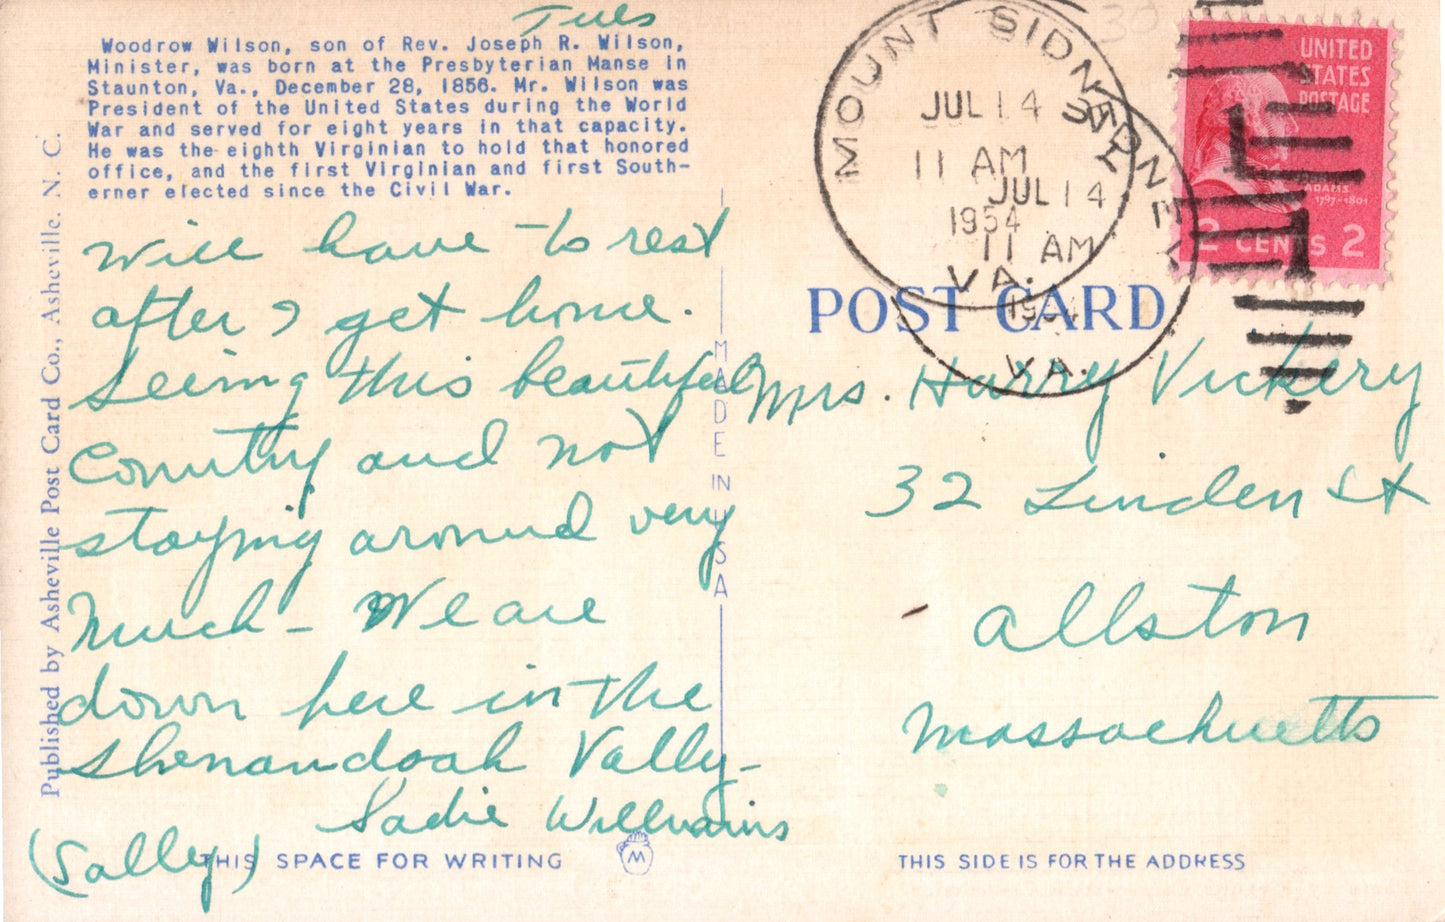 Tues
Woodrow Wilson, son of Rev. Joseph R. Wilson,
Minister, was born at the Presbyterian Manse in
Staunton, Va., December 28, 1856. Mr. Wilson was
President of the United States during the World
War and served for eight years in that capacity.
He was the eighth Virginian to hold that honored
office, and the first Virginian and first South-
erner elected since the Civil War.
Will have to rest
after I get home.
Seeing this beautiful
Country and not
staying around very
Much - We are
down here in the
Shenandoah Vally -
Sadie Williams
(Sally)
THIS SPACE FOR WRITING
M
Published by Asheville Post Card Co., Asheville. N. C.
MADE IN USA
MOUNT SIDNEY
JUL 14
11 AM
1954
VA.
SIDNEY
JUL 14
11 AM
1954
VA.
UNITED
STATES
POSTAGE
ADAMS
1797-1801
2 CENTS 2
POST CARD
Mrs. Harry Vickery
32 Linden St
Allston
Massachuetts
THIS SIDE IS FOR THE ADDRESS